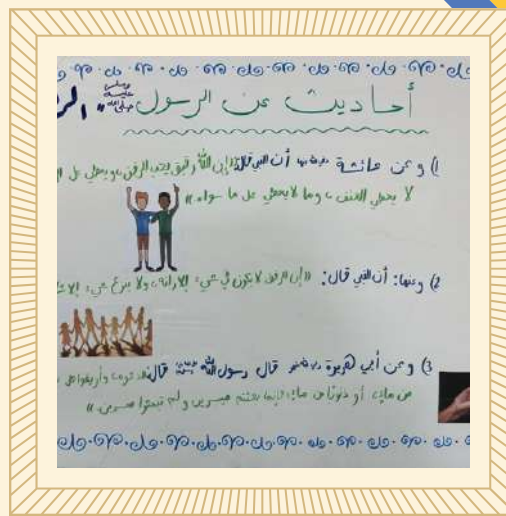 أحاديث عن الرسول ﷺ، الر
1) وعن عائشة رضي الله عنها أن النبي قال: «إن الله رفيق يحب الرفق، ويعطي على ال
لا يعطي العنف، وما لا يعطي على ما سواه»
2) وعنها: أن النبي قال: «إن الرفق لا يكون في شيء إلا زانه، ولا ينزع من شيء إلا
3) وعن أبي هريرة رضي الله عنه قال رسول الله ﷺ قال: دعوه وأريقوا على
من ماء، أو ذنوبا من ماء، فإنما بعثتم ميسرين ولم تبعثوا معسرين.»